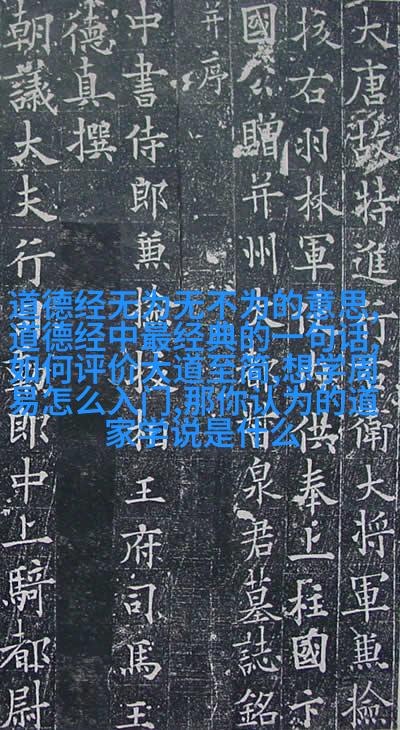 大唐故特進行右衛大将軍兼檢
挍右羽林軍仗内供奉上柱國卞
國公贈并州大都督泉君墓誌銘
并序
中書侍郎兼檢挍相王府司馬王
德真撰
朝議大夫行司勳郎中上騎都尉
道德经无为无不为的意思,
道德经中最经典的一句话,
如何评价大道至简,想学周
易怎么入门,那你认为的道
家学说是什么